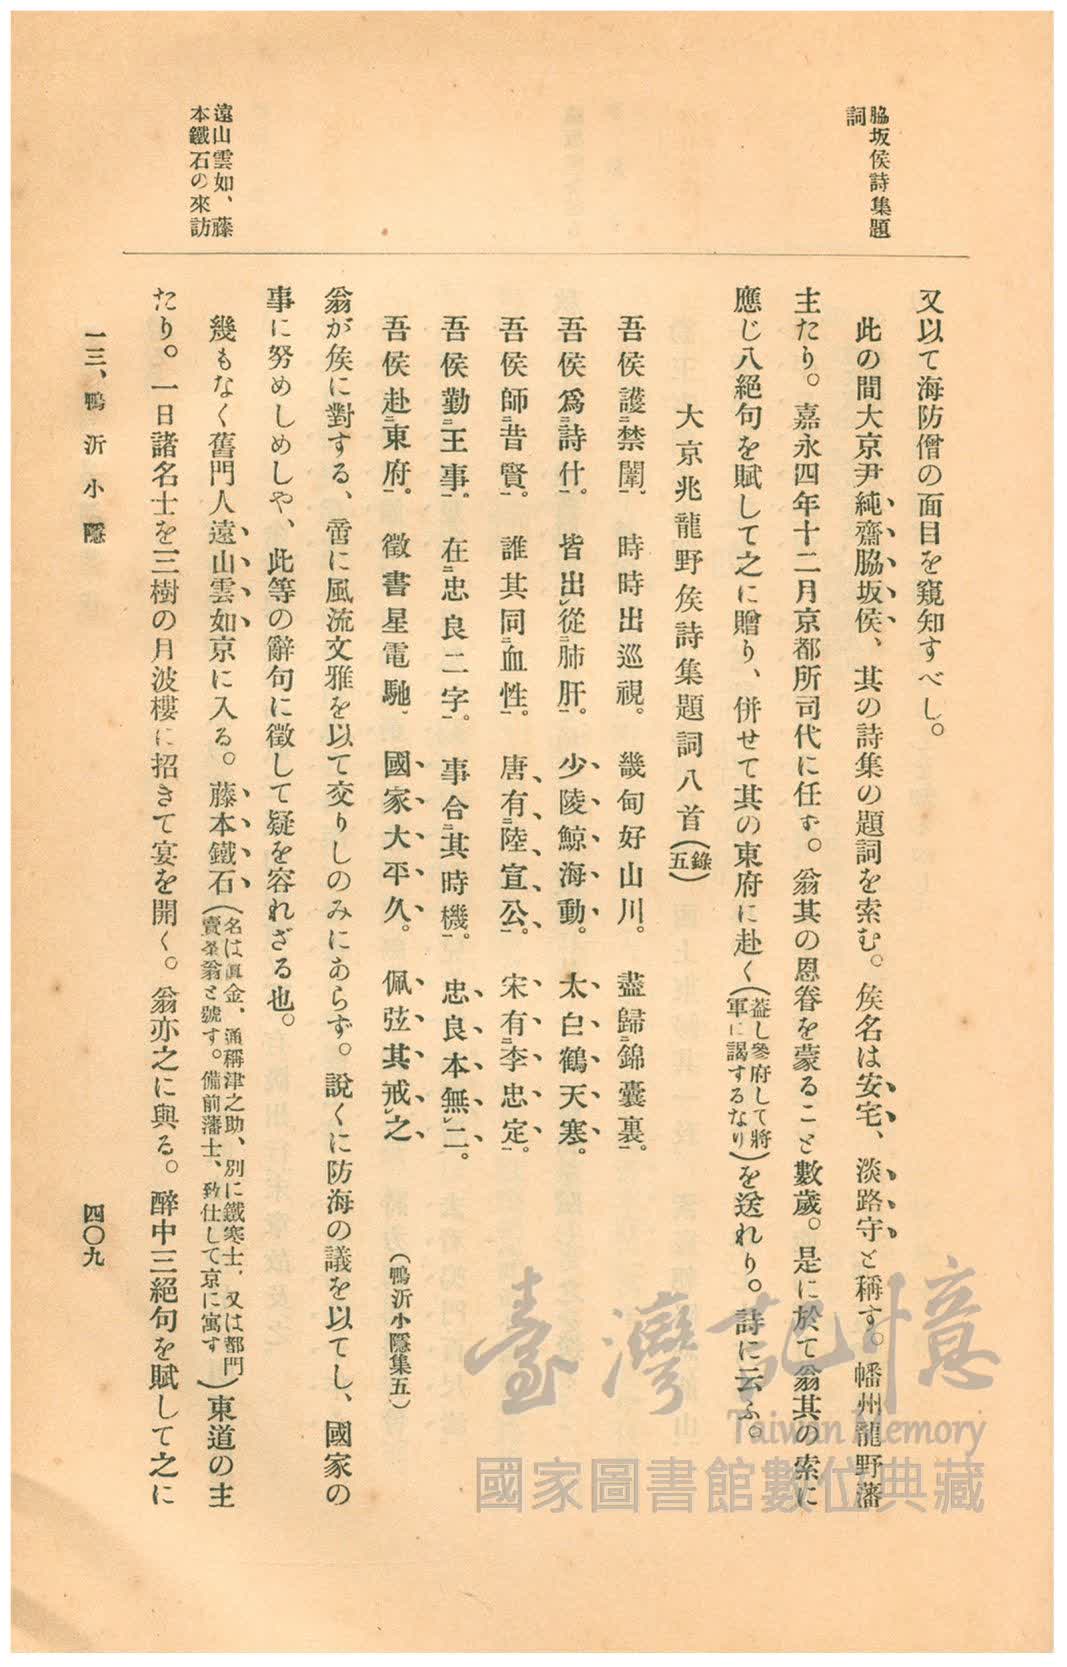 脇坂侯詩集題
詞
又以て海防僧の面目を窺知すべし。
此の間大京尹純齋脇坂侯、其の詩集の題詞を索む。侯名は安宅、淡路守と稱す。幡州龍野藩
主たり。嘉永四年十二月京都所司代に任ず。翁其の恩眷を蒙ること數歲。是に於て翁其の索に
應じ八絕句を賦して之に贈り、併せて其の東府に赴く(蓋し參府して將軍に謁するなり)を送れり。詩に云ふ。
大京兆龍野侯詩集題詞八首(錄五)
吾侯護禁闈。 時時出巡視。 畿甸好山川。 盡歸錦囊裏。
吾侯爲詩什。 皆出從肺肝。 少陵鯨海動。 太白鶴天寒。
吾侯師昔賢。 誰其同血性。 唐有陸宣公。 宋有李忠定。
吾侯勤王事。 在忠良二字。 事合其時機。 忠良本無二。
吾侯赴東府。 徵書星電馳。 國家大平久。 佩弦其戒之 (鴨沂小隱集五)
翁が侯に對する、啻に風流文雅を以て交りしのみにあらず。說くに防海の議を以てし、國家の
事に努めしめしや、此等の辭句に徵して疑を容れざる也。
遠山雲如、藤
本鐵石の來訪
幾もなく舊門人遠山雲如京に入る。藤本鐵石(名は眞金、通稱津之助、別に鐵寒士、又は都門賣菜翁と號す。備前藩士、致仕して京に寓す)東道の主
たり。一日諸名士を三樹の月波樓に招きて宴を開く。翁亦之に與る。醉中三絕句を賦して之に
一三、鴨沂小隱
四〇九
臺灣記憶
Taiwan Memory
國家圖書館數位典藏